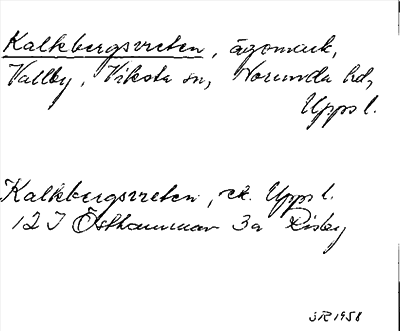 Kalkbergsvreten, ägomark,
Vallby, Viksta sn, Norunda hd,
Upps l.
Kalkbergsvreten, ek. Upps l.
12 I Östhammar 3a Risby
SR 1958